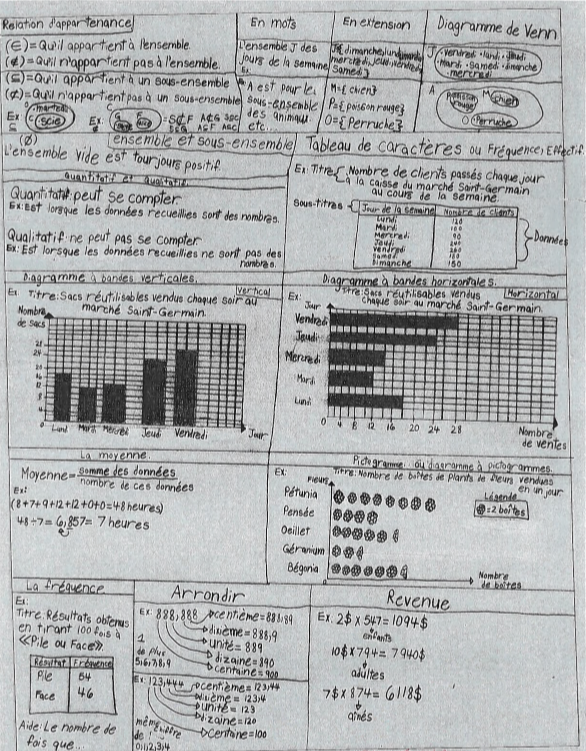 Relation d'appartenance
(∈) = Qu'il appartient à l'ensemble
(∉) = Qu'il n'appartient pas à l'ensemble.
(⊆) = Qu'il appartient à un sous-ensemble
(⊄) = Qu'il n'appartient pas à un sous-ensemble
En mots
L'ensemble J des
jours de la semaine
A est pour le
sous-ensemble
des animaux
etc...
En extension
M={chien}
P={poison rouge}
O={Perruche}
Diagramme de Venn
J
vendredi · lundi · jeudi
· mardi · samedi · dimanche
mercredi
A
Poisson rouge
M chien
O Perruche
(∅) ensemble et sous-ensemble
L'ensemble vide est toujours positif.
quantitatif et qualitatif
Quantitatif: peut se compter
Ex: Est lorsque les données recueillies sont des nombres.
Qualitatif: ne peut pas se compter
Ex: Est lorsque les données recueillies ne sont pas des
nombres.
Tableau de caractères ou Fréquence, Effectif
Ex: Titre: Nombre de clients passés chaque jour
à la caisse du marché Saint-Germain
au cours de la semaine.
Sous-titres
Jour de la semaine Nombre de clients
Lundi 120
Mardi 100
Mercredi 90
Jeudi
Vendredi
Samedi
Dimanche 150
Données
Diagramme à bandes verticales.
Vertical
Ex: Titre: Sacs réutilisables vendus chaque soir au
marché Saint-Germain.
Nombre
de sacs
Lundi Mardi Mercredi Jeudi Vendredi
Jour
Diagramme à bandes horizontales.
Horizontal
Ex: Titre: Sacs réutilisables vendus
chaque soir au marché Saint-Germain.
Jour
Vendredi
Jeudi
Mercredi
Mardi
Lundi
0 4 8 12 16 20 24 28
Nombre
de ventes
La moyenne
Moyenne = somme des données
nombre de ces données
Ex:
(8+7+9+12+12+0+0=48 heures)
48÷7= 6,857= 7 heures
Pictogramme ou diagramme à pictogrammes.
Ex: Titre: Nombre de boîtes de plants de fleurs vendues
en un jour
Fleurs
Pétunia
Pensée
Oeillet
Géranium
Bégonia
Légende
=2 boîtes
0
Nombre
de boîtes
La fréquence
Ex:
Titre: Résultats obtenus
en tirant 100 fois à
«Pile ou Face»
Résultat Fréquence
Pile 54
Face 46
Aide: Le nombre de
fois que...
Arrondir
Ex: 888,888 centième=888,89
dixième=888,9
unité=889
dizaine=890
centaine=900
1
de plus
5,6,7,8,9
Ex: 123,444 centième=123,44
dixième=123,4
unité=123
dizaine=120
Centaine=100
même chiffre
de
0,1,2,3,4
Revenue
Ex. 2$ x 547= 1094$
enfants
10$ x 794= 7940$
adultes
7$ x 874= 6118$
aînés